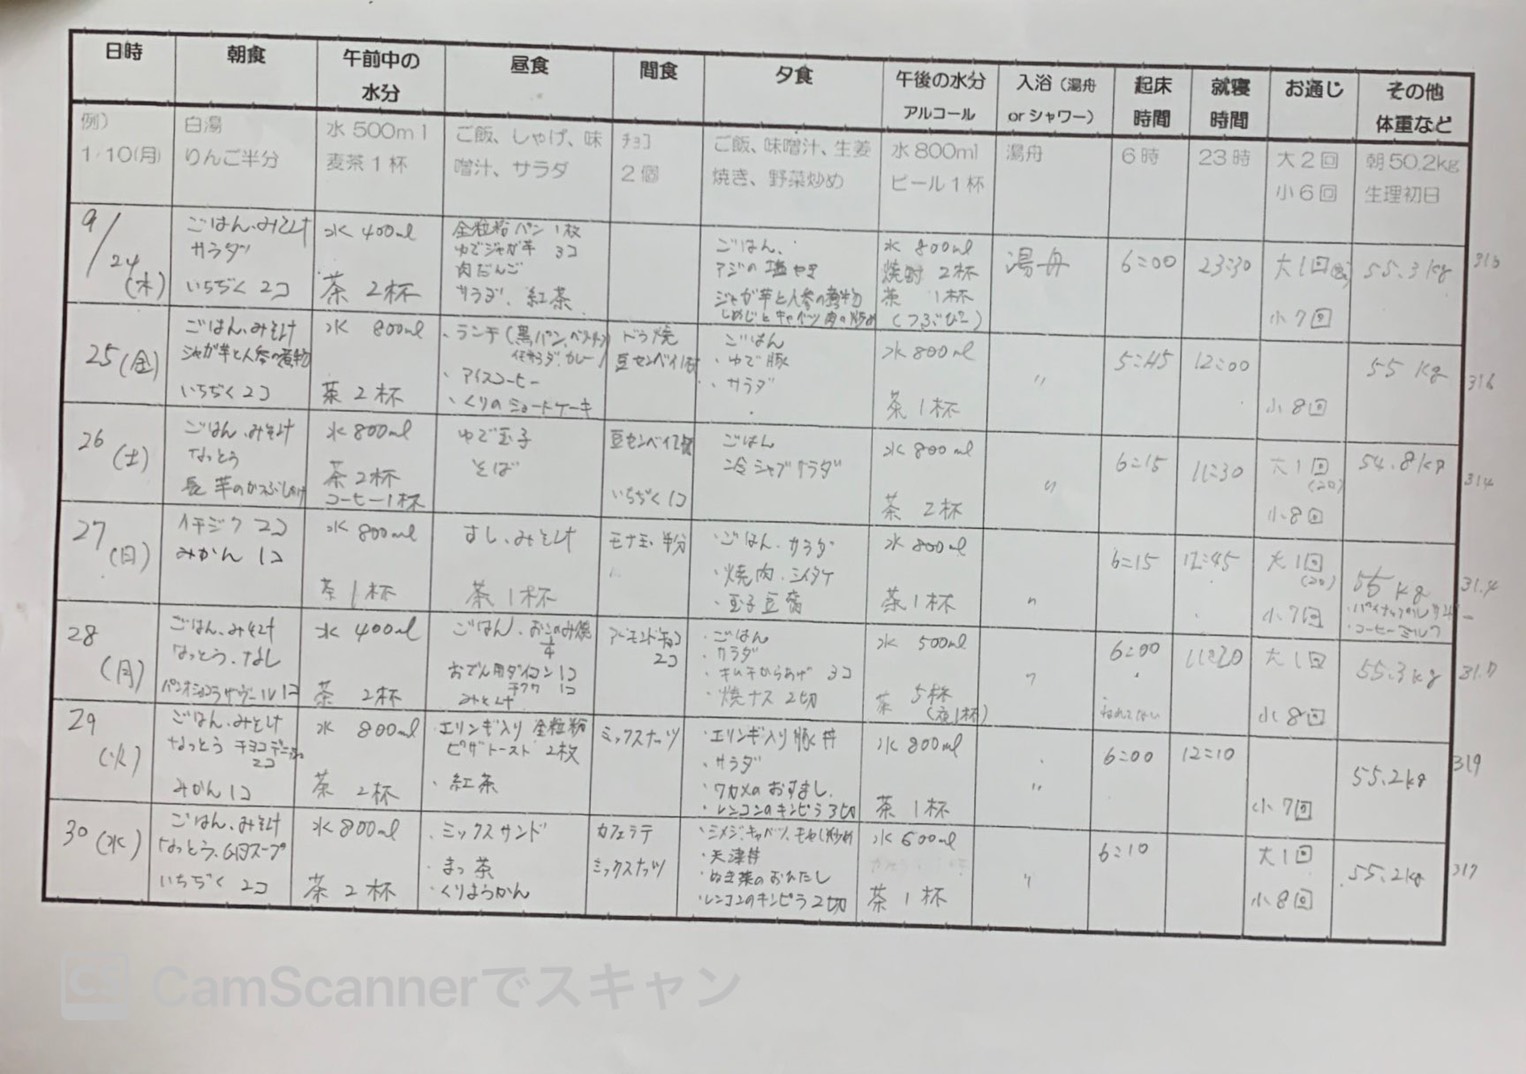 日時 朝食 午前中の水分 昼食 間食 夕食 午後の水分 アルコール 入浴（湯舟 or シャワー） 起床時間 就寝時間 お通じ その他 体重など
例）
1/10(月)
白湯
りんご半分
水 500ml
麦茶1杯
ご飯、しゃげ、味
噌汁、サラダ
チョコ
2個
ご飯、味噌汁、生姜
焼き、野菜炒め
水 800ml
ビール1杯
湯舟
6時
23時
大2回
小6回
朝50.2kg
生理初日
9/24(木)
ごはん、みそ汁
サラダ
いちぢく 2コ
水 400ml
茶 2杯
全粒粉パン 1枚
ゆでジャガ芋 3コ
肉だんご
サラダ、紅茶
ごはん、
アジの塩やき
ジャガ芋と人参の煮物
しめじとキャベツ肉の炒め
水 800ml
焼酎 2杯
茶 1杯
湯舟
6:00
23:30
大1回
小7回
55.3kg
25(金)
ごはん、みそ汁
ジャガ芋と人参の煮物
いちぢく 2コ
水 800ml
茶 2杯
・ランチ(黒パン、
カレー)
・アイスコーヒー
・くりのショートケーキ
ドラ焼
豆センベイ1枚
ごはん
・ゆで豚
・サラダ
水 800ml
茶 1杯
〃
5:45
12:00
小8回
55 kg
316
26(土)
ごはん、みそ汁
なっとう
長芋のかつぶしかけ
水 800ml
茶 2杯
コーヒー 1杯
ゆで玉子
そば
豆センベイ
いちぢく 1コ
ごはん
冷シャブサラダ
水 800ml
茶 2杯
〃
6:15
11:30
大1回
(20)
小8回
54.8kg
314
27(日)
イチジク 2コ
みかん 1コ
水 800ml
茶 1杯
すし、みそ汁
茶 1杯
モナ王 半分
・ごはん、サラダ
・焼肉、シイタケ
・玉子豆腐
水 800ml
茶 1杯
〃
6:15
12:45
大1回
(20)
小7回
55 kg
・コーヒーミルク
31.4
28(月)
ごはん、みそ汁
なっとう、なし
水 400ml
茶 2杯
ごはん、おこのみ焼
おでん用ダイコン 1コ
チクワ 1コ
みそ汁
アーモンドチョコ
2コ
・ごはん
・サラダ
・キムチからあげ 3コ
・焼ナス 2切
水 500ml
茶 5杯
(夜1杯)
〃
6:00
11:20
大1回
小8回
55.3kg
31.7
29(火)
ごはん、みそ汁
なっとう
2コ
みかん 1コ
水 800ml
茶 2杯
・エリンギ入り 全粒粉
ピザトースト 2枚
・紅茶
ミックスナッツ
・エリンギ入り豚丼
・サラダ
・ワカメのおすまし
・レンコンのキンピラ 3切
水 800ml
茶 1杯
〃
6:00
12:10
小7回
55.2kg
319
30(水)
ごはん、みそ汁
いちぢく 2コ
水 800ml
茶 2杯
・ミックスサンド
・まっ茶
・くりようかん
カフェラテ
ミックスナッツ
・シメジ、キャベツ、モヤし炒め
・天津丼
・ぬき菜のおひたし
・レンコンのキンピラ 2切
水 600ml
茶 1杯
〃
6:10
大1回
小8回
55.2kg
317
CS CamScannerでスキャン